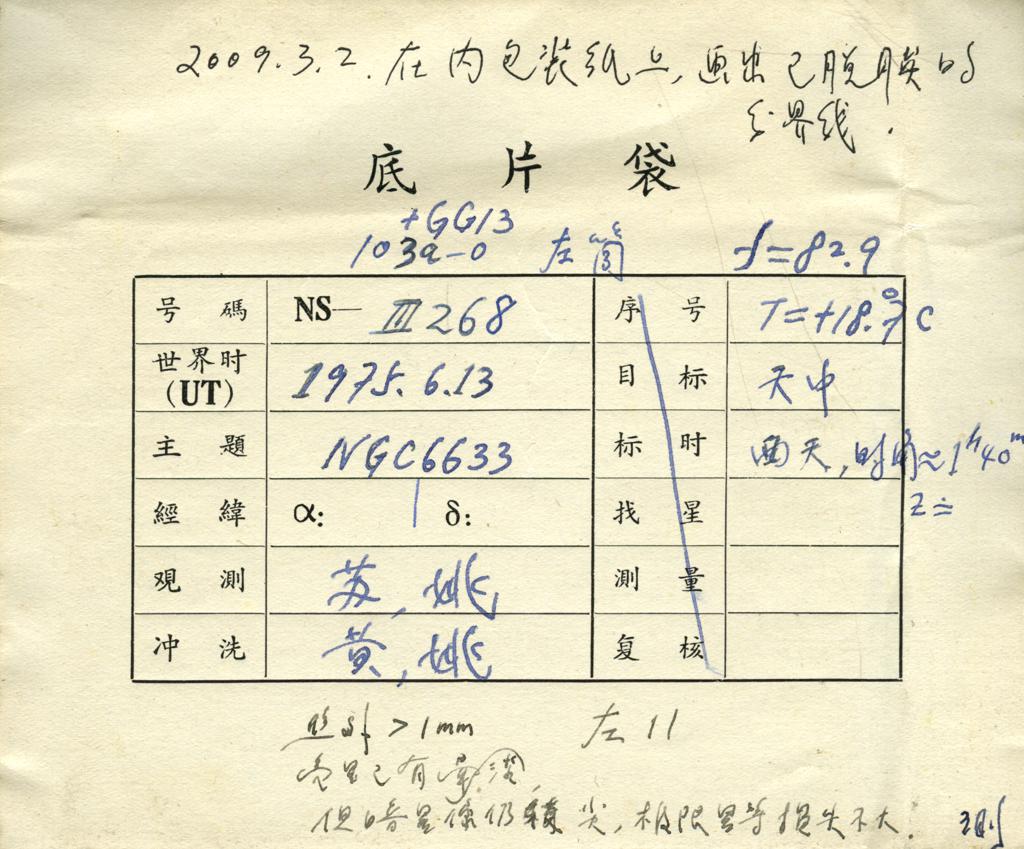 2009.3.2. 在内包装纸上,画出已脱膜的
分界线.
底片袋
+GG13
103a-O 左筒 f=82.9
号碼 NS—Ⅲ268 序号 T=+18.7°C
世界时(UT) 1975.6.13 目标 天中
主題 NGC6633 标时 西天,时角≈1h40m
經緯 α: δ: 找星 z≐
观測 苏,姚 測量
冲洗 黄,姚 复核
Δf>1mm 左11
亮星已有晕
但暗星像仍 尖,极限星等损失不大.